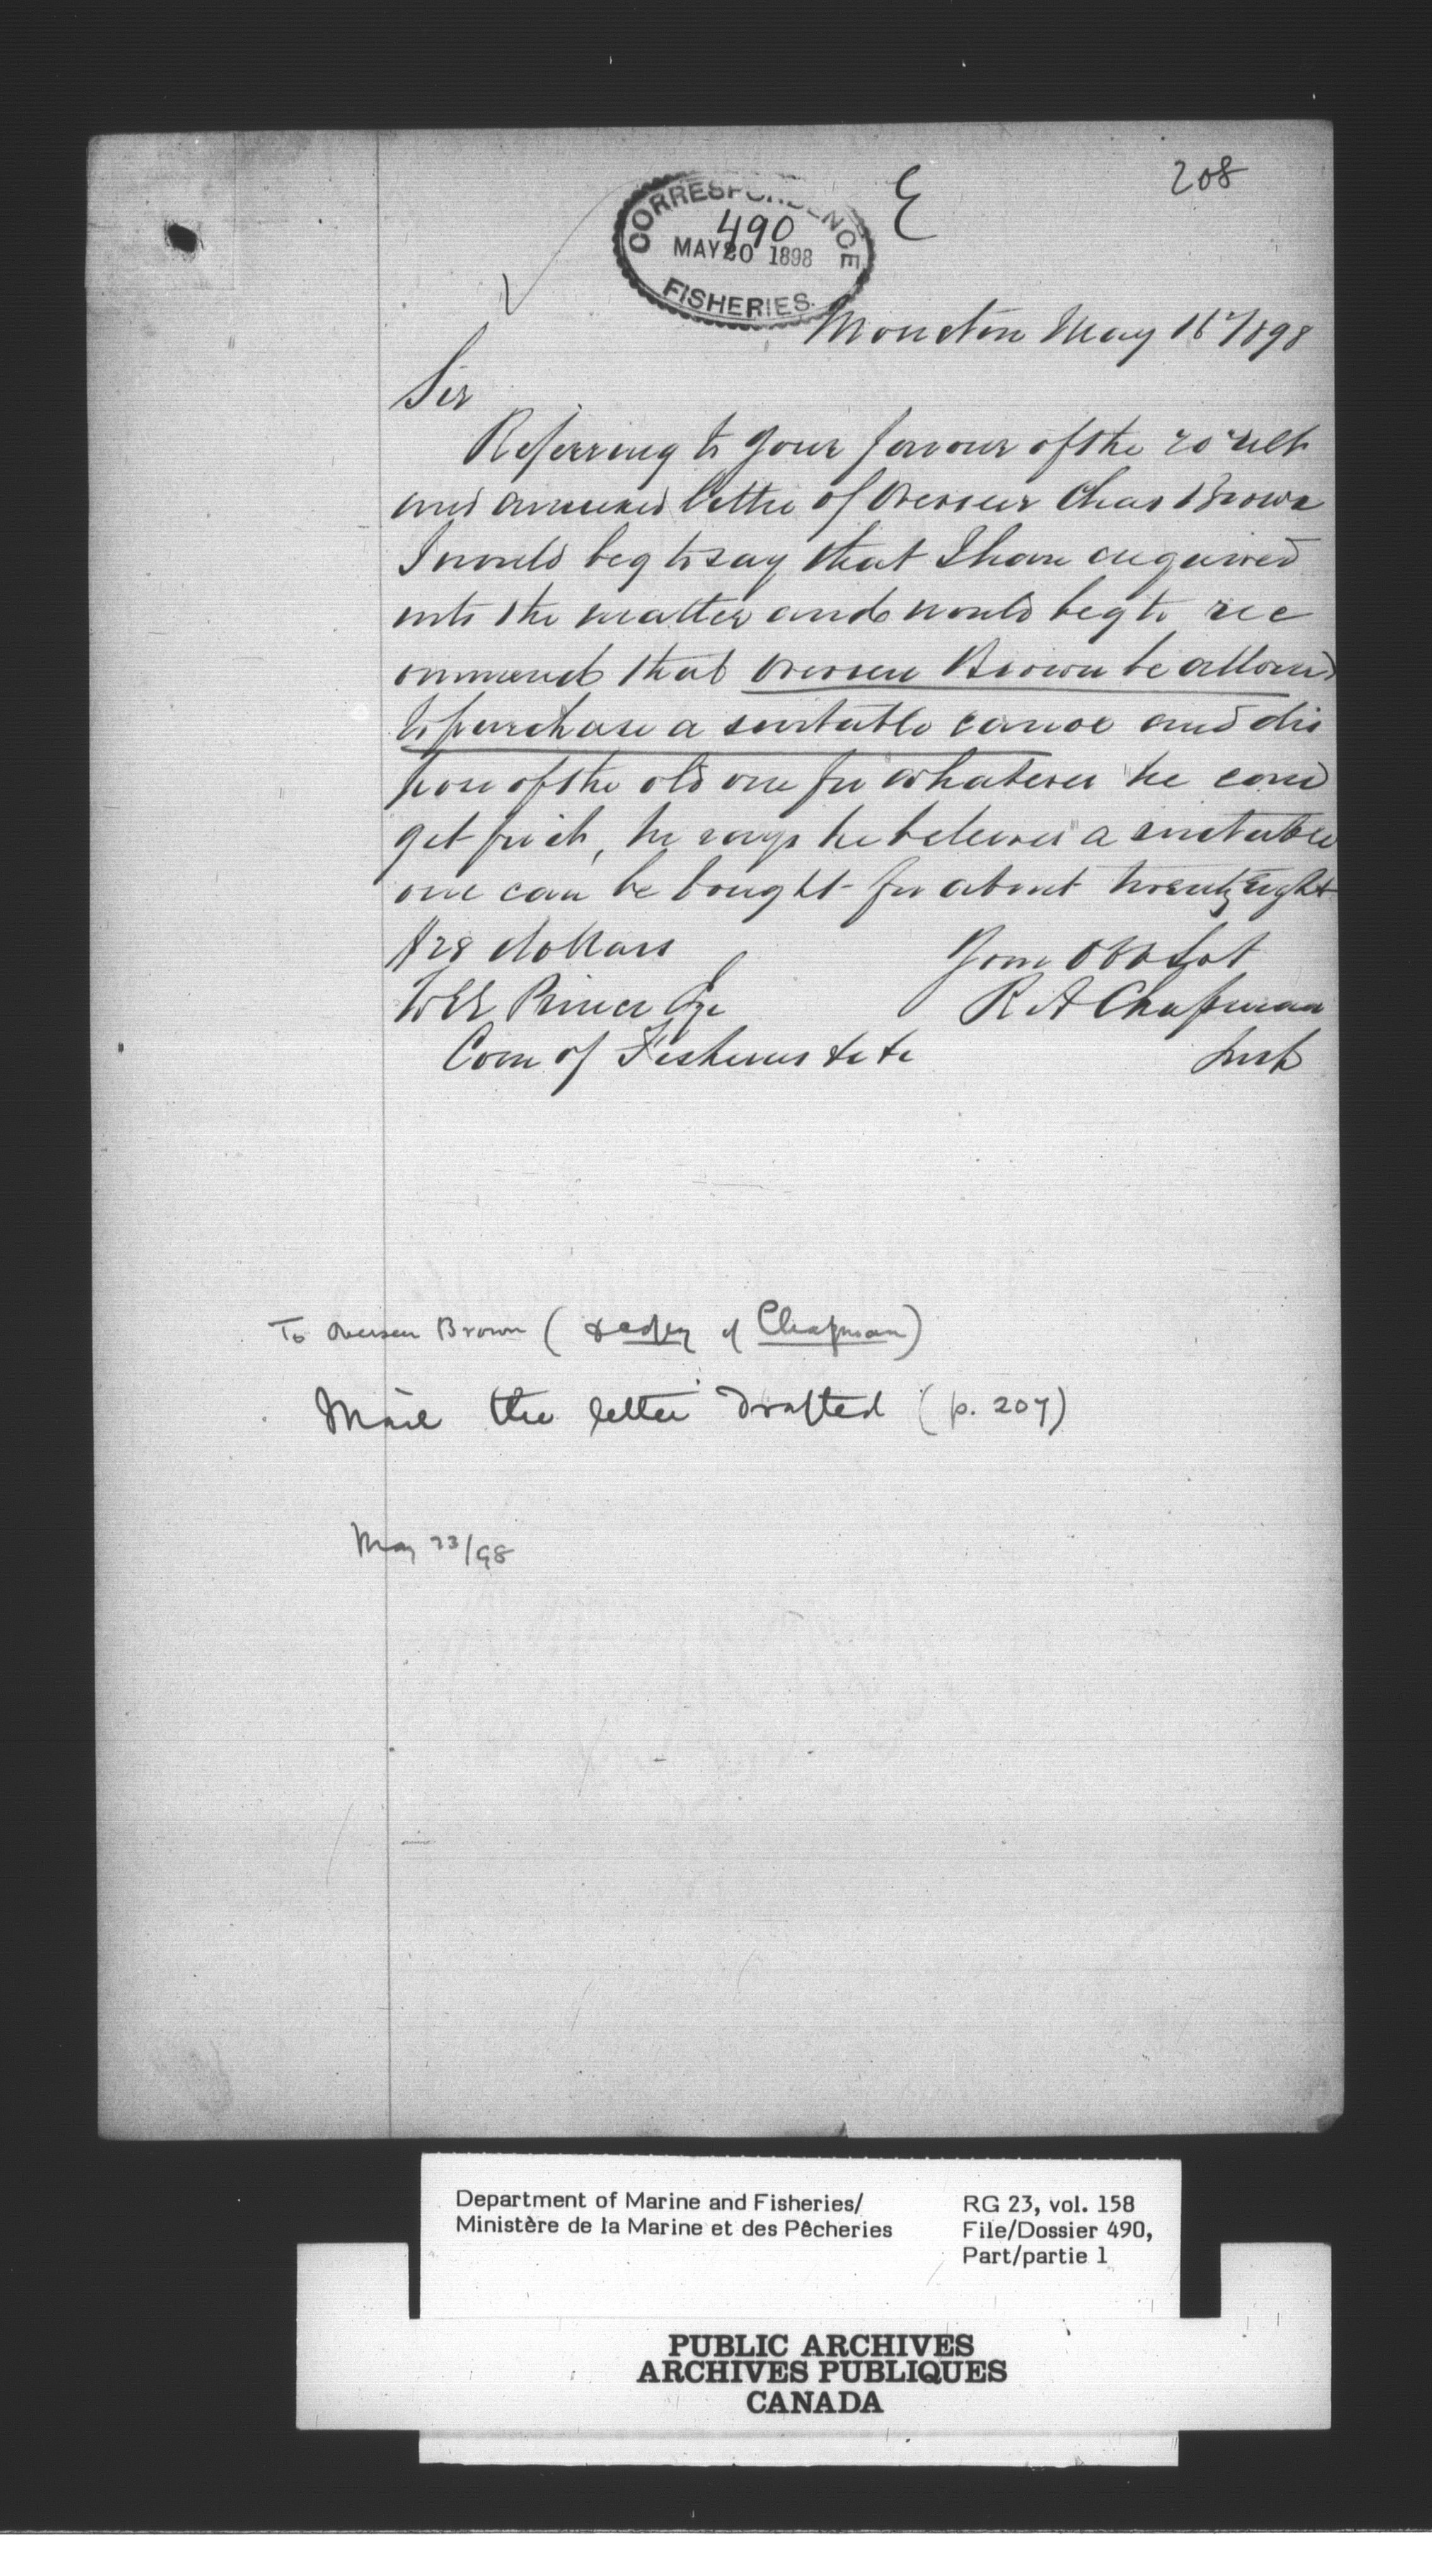 208
E
CORRESPONDENCE
490
MAY 20 1898
FISHERIES.
Moncton May 16th/1898
Sir
Referring to your favour of the 20th ult
and annexed letter of Overseer Chas Brown
I would beg to say that I have enquired
into the matter and would beg to rec
ommend that Overseer Brown be allowed
to purchase a suitable canoe and dis
pose of the old one for whatever he could
get for it, he says he believes a suitable
one can be bought for about twenty eight
$28 dollars
Your Obt Svt
R A Chapman
Insp
Prince Esq
Com of Fisheries &c &c
To Overseer Brown ( & copy of Chapman)
Mail the letter drafted (p. 207)
May 23/98
Department of Marine and Fisheries/
Ministère de la Marine et des Pêcheries
RG 23, vol. 158
File/Dossier 490,
Part/partie 1
PUBLIC ARCHIVES
ARCHIVES PUBLIQUES
CANADA